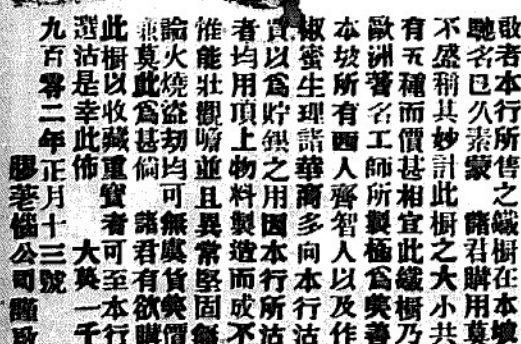 啟者本行所售之鐵櫥在本坡
馳名已久素蒙 諸君購用莫
不盛稱其妙計此櫥之大小共
有五種而價甚相宜此鐵櫥乃
歐洲著名工師所製極爲美善
本坡所有西人齊智人以及作
椒蜜生理諸華商多向本行沽
買以爲貯銀之用因本行所沽
者均用頂上物料製造而成不
惟能壯觀瞻並且異常堅固無
論火燒盜刼均可無虞貨美價
兼莫此爲甚倘 諸君有欲購
此櫥以收藏重寶者可至本行
選沽是幸此佈 大英一千
九百零二年正月十三號
膠荖惱公司謹啟